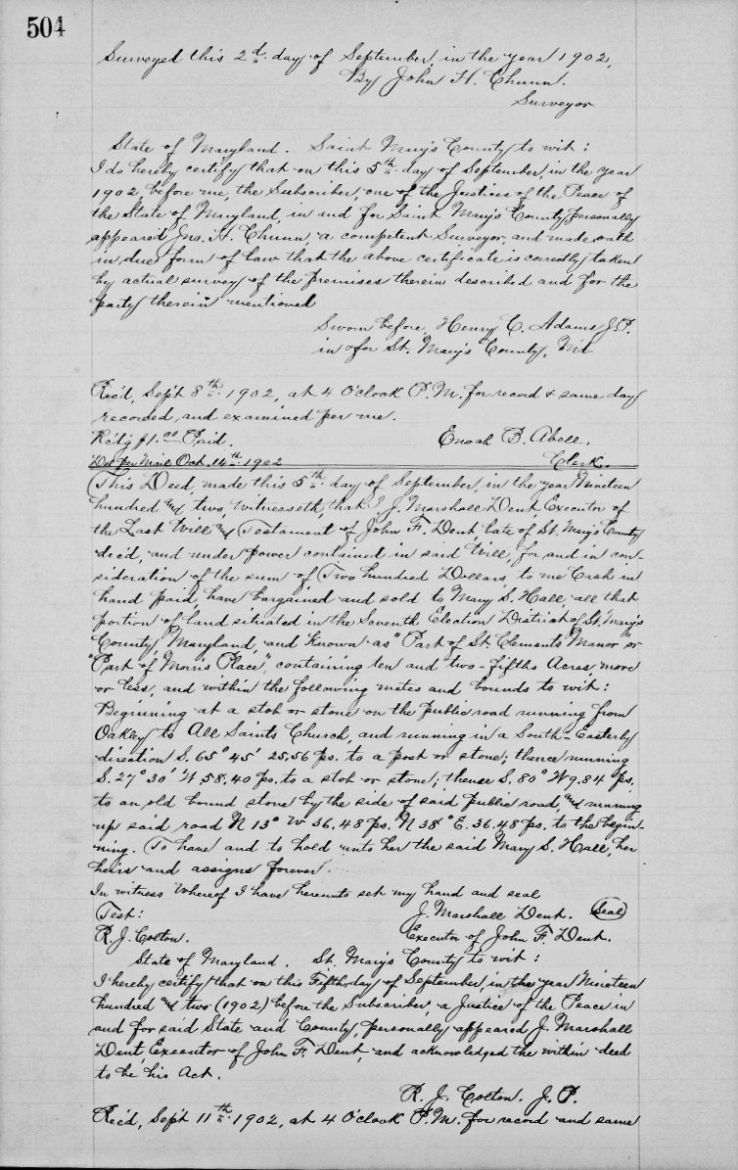 504
Surveyed this 2d day of September, in the year 1902,
By John H. Chunn.
Surveyor
State of Maryland. Saint Mary's County to wit:
I do hereby certify that on this 5th day of September, in the year
1902, before me, the Subscriber, one of the Justices of the Peace of
the State of Maryland, in and for Saint Mary's County, personally
appeared Jno. H. Chunn, a competent Surveyor, and made oath
in due form of law that the above certificate is correctly taken
by actual survey of the premises therein described and for the
party therein mentioned
Sworn before, Henry C. Adams J.P.
in & for St. Mary's County, Md.
Rec'd, Sept 8th 1902, at 4 O'clock P.M. for record & same day
recorded, and examined per me.
Rc'd'g $1.00 Paid. Enoch B. Abell.
Del per Mail Oct. 14th 1902 Clerk.
This Deed, made this 5th day of September, in the year Nineteen
hundred and two, witnesseth, that I J. Marshall Dent, Executor of
the Last Will and Testament of John F. Dent, late of St. Mary's County
dec'd, and under power contained in said Will, for and in con-
sideration of the sum of Two hundred Dollars, to me Cash in
hand paid, have bargained and sold to Mary S. Hall, all that
portion of land situated in the Seventh Election District of St. Mary's
County, Maryland, and Known as "Part of St. Clements Manor or
"Part of Morris Place", containing ten and two-fifths Acres, more
or less, and within the following metes and bounds to wit:
Beginning at a stob or stone on the public road running from
Oakley to All Saints Church, and running in a South-Easterly
direction S. 65° 45' 25.56 ps. to a post or stone; thence running
S. 27° 30' W 58.40 ps. to a stob or stone; thence S. 80° W 9.84 ps.
to an old bound stone by the side of said public road, and running
up said road N 13° W 36.48 ps. N 38° E. 36.48 ps. to the begin-
ning. To have and to hold unto her the said Mary S. Hall, her
heirs and assigns forever.
In witness Whereof I have hereunto set my hand and seal
Test: J. Marshall Dent. (Seal)
R. J. Colton. Executor of John F. Dent.
State of Maryland. St. Mary's County to wit:
I hereby certify that on this Fifth day of September, in the year Nineteen
hundred and two (1902) before the Subscriber, a Justice of the Peace in
and for said State and County, personally appeared J. Marshall
Dent, Executor of John F. Dent, and acknowledged the within deed
to be his Act.
R. J. Colton. J.P.
Rec'd, Sept 11th 1902, at 4 O'clock P.M. for record and same